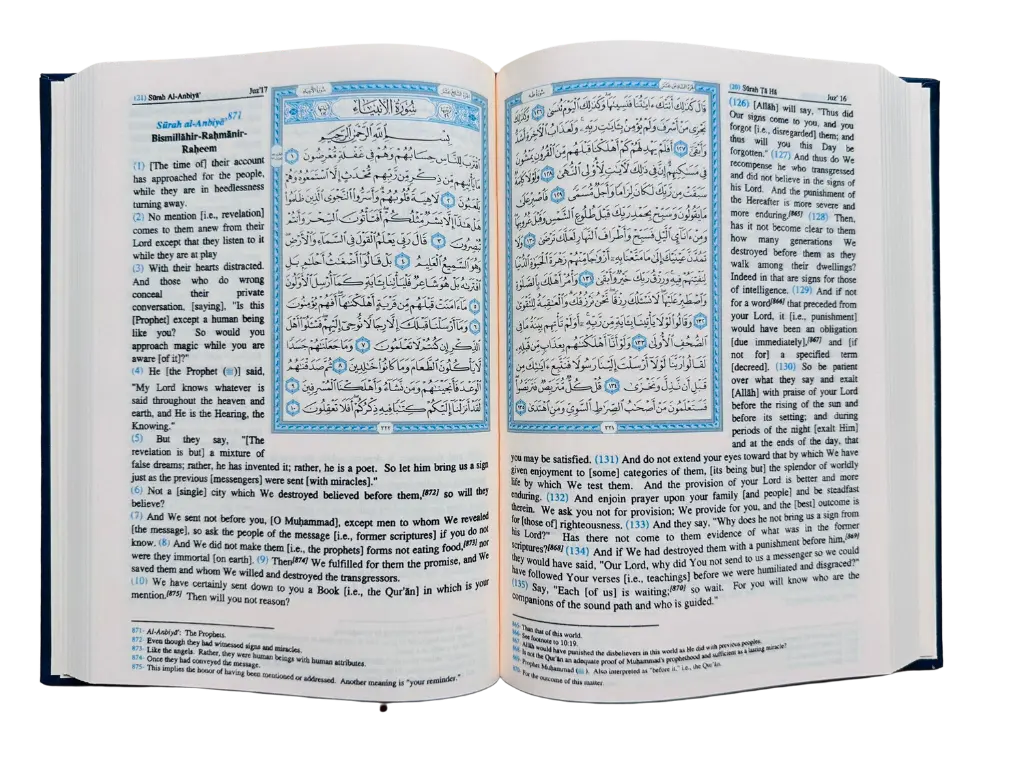 (20) Sūrah Ṭā Hā
Juz' 16
الجزء السادس عشر
سورة طه
قَالَ كَذَٰلِكَ أَتَتْكَ ءَايَٰتُنَا فَنَسِيتَهَا وَكَذَٰلِكَ ٱلْيَوْمَ تُنسَىٰ ١٢٦ وَكَذَٰلِكَ
نَجْزِى مَنْ أَسْرَفَ وَلَمْ يُؤْمِنۢ بِـَٔايَٰتِ رَبِّهِۦ وَلَعَذَابُ ٱلْءَاخِرَةِ أَشَدُّ
وَأَبْقَىٰٓ ١٢٧ أَفَلَمْ يَهْدِ لَهُمْ كَمْ أَهْلَكْنَا قَبْلَهُم مِّنَ ٱلْقُرُونِ يَمْشُونَ
فِى مَسَٰكِنِهِمْ إِنَّ فِى ذَٰلِكَ لَءَايَٰتٍ لِّأُو۟لِى ٱلنُّهَىٰ ١٢٨ وَلَوْلَا كَلِمَةٌ
سَبَقَتْ مِن رَّبِّكَ لَكَانَ لِزَامًا وَأَجَلٌ مُّسَمًّى ١٢٩ فَٱصْبِرْ عَلَىٰ
مَا يَقُولُونَ وَسَبِّحْ بِحَمْدِ رَبِّكَ قَبْلَ طُلُوعِ ٱلشَّمْسِ وَقَبْلَ غُرُوبِهَا
وَمِنْ ءَانَآئِ ٱلَّيْلِ فَسَبِّحْ وَأَطْرَافَ ٱلنَّهَارِ لَعَلَّكَ تَرْضَىٰ ١٣٠ وَلَا
تَمُدَّنَّ عَيْنَيْكَ إِلَىٰ مَا مَتَّعْنَا بِهِۦٓ أَزْوَٰجًا مِّنْهُمْ زَهْرَةَ ٱلْحَيَوٰةِ ٱلدُّنْيَا
لِنَفْتِنَهُمْ فِيهِ وَرِزْقُ رَبِّكَ خَيْرٌ وَأَبْقَىٰ ١٣١ وَأْمُرْ أَهْلَكَ بِٱلصَّلَوٰةِ
وَٱصْطَبِرْ عَلَيْهَا لَا نَسْـَٔلُكَ رِزْقًا نَّحْنُ نَرْزُقُكَ وَٱلْعَٰقِبَةُ لِلتَّقْوَىٰ
١٣٢ وَقَالُوا۟ لَوْلَا يَأْتِينَا بِـَٔايَةٍ مِّن رَّبِّهِۦٓ أَوَلَمْ تَأْتِهِم بَيِّنَةُ مَا فِى
ٱلصُّحُفِ ٱلْأُولَىٰ ١٣٣ وَلَوْ أَنَّآ أَهْلَكْنَٰهُم بِعَذَابٍ مِّن قَبْلِهِۦ
لَقَالُوا۟ رَبَّنَا لَوْلَآ أَرْسَلْتَ إِلَيْنَا رَسُولًا فَنَتَّبِعَ ءَايَٰتِكَ مِن
قَبْلِ أَن نَّذِلَّ وَنَخْزَىٰ ١٣٤ قُلْ كُلٌّ مُّتَرَبِّصٌ فَتَرَبَّصُوا۟
فَسَتَعْلَمُونَ مَنْ أَصْحَٰبُ ٱلصِّرَٰطِ ٱلسَّوِىِّ وَمَنِ ٱهْتَدَىٰ ١٣٥
٣٢١
(126) [Allāh] will say, "Thus did
Our signs come to you, and you
forgot [i.e., disregarded] them; and
thus will you this Day be
forgotten." (127) And thus do We
recompense he who transgressed
and did not believe in the signs of
his Lord. And the punishment of
the Hereafter is more severe and
more enduring.[865] (128) Then,
has it not become clear to them
how many generations We
destroyed before them as they
walk among their dwellings?
Indeed in that are signs for those
of intelligence. (129) And if not
for a word[866] that preceded from
your Lord, it [i.e., punishment]
would have been an obligation
[due immediately],[867] and [if
not for] a specified term
[decreed]. (130) So be patient
over what they say and exalt
[Allāh] with praise of your Lord
before the rising of the sun and
before its setting; and during
periods of the night [exalt Him]
and at the ends of the day, that
you may be satisfied. (131) And do not extend your eyes toward that by which We have
given enjoyment to [some] categories of them, [its being but] the splendor of worldly
life by which We test them. And the provision of your Lord is better and more
enduring. (132) And enjoin prayer upon your family [and people] and be steadfast
therein. We ask you not for provision; We provide for you, and the [best] outcome is
for [those of] righteousness. (133) And they say, "Why does he not bring us a sign from
his Lord?" Has there not come to them evidence of what was in the former
scriptures?[868] (134) And if We had destroyed them with a punishment before him,[869]
they would have said, "Our Lord, why did You not send to us a messenger so we could
have followed Your verses [i.e., teachings] before we were humiliated and disgraced?"
(135) Say, "Each [of us] is waiting;[870] so wait. For you will know who are the
companions of the sound path and who is guided."
865- Than that of this world.
866- See footnote to 10:19.
867- Allāh would have punished the disbelievers in this world as He did with previous peoples.
868- Is not the Qur'ān an adequate proof of Muḥammad's prophethood and sufficient as a lasting miracle?
869- Prophet Muḥammad (ﷺ). Also interpreted as "before it," i.e., the Qur'ān.
870- For the outcome of this matter.
(21) Sūrah Al-Anbiyā'
Juz'17
الجزء السابع عشر
سورة الأنبياء
سُورَةُ الأَنبِيَاءِ
بِسْمِ ٱللَّهِ ٱلرَّحْمَٰنِ ٱلرَّحِيمِ
ٱقْتَرَبَ لِلنَّاسِ حِسَابُهُمْ وَهُمْ فِى غَفْلَةٍ مُّعْرِضُونَ ١
مَا يَأْتِيهِم مِّن ذِكْرٍ مِّن رَّبِّهِم مُّحْدَثٍ إِلَّا ٱسْتَمَعُوهُ وَهُمْ
يَلْعَبُونَ ٢ لَاهِيَةً قُلُوبُهُمْ وَأَسَرُّوا۟ ٱلنَّجْوَى ٱلَّذِينَ ظَلَمُوا۟
هَلْ هَٰذَآ إِلَّا بَشَرٌ مِّثْلُكُمْ أَفَتَأْتُونَ ٱلسِّحْرَ وَأَنتُمْ
تُبْصِرُونَ ٣ قَالَ رَبِّى يَعْلَمُ ٱلْقَوْلَ فِى ٱلسَّمَآءِ وَٱلْأَرْضِ
وَهُوَ ٱلسَّمِيعُ ٱلْعَلِيمُ ٤ بَلْ قَالُوٓا۟ أَضْغَٰثُ أَحْلَٰمٍۭ بَلِ
ٱفْتَرَىٰهُ بَلْ هُوَ شَاعِرٌ فَلْيَأْتِنَا بِـَٔايَةٍ كَمَآ أُرْسِلَ ٱلْأَوَّلُونَ
٥ مَآ ءَامَنَتْ قَبْلَهُم مِّن قَرْيَةٍ أَهْلَكْنَٰهَآ أَفَهُمْ يُؤْمِنُونَ
٦ وَمَآ أَرْسَلْنَا قَبْلَكَ إِلَّا رِجَالًا نُّوحِىٓ إِلَيْهِمْ فَسْـَٔلُوٓا۟ أَهْلَ
ٱلذِّكْرِ إِن كُنتُمْ لَا تَعْلَمُونَ ٧ وَمَا جَعَلْنَٰهُمْ جَسَدًا
لَّا يَأْكُلُونَ ٱلطَّعَامَ وَمَا كَانُوا۟ خَٰلِدِينَ ٨ ثُمَّ صَدَقْنَٰهُمُ
ٱلْوَعْدَ فَأَنجَيْنَٰهُمْ وَمَن نَّشَآءُ وَأَهْلَكْنَا ٱلْمُسْرِفِينَ ٩
لَقَدْ أَنزَلْنَآ إِلَيْكُمْ كِتَٰبًا فِيهِ ذِكْرُكُمْ أَفَلَا تَعْقِلُونَ ١٠
٣٢٢
Sūrah al-Anbiyā'871
Bismillāhir-Raḥmānir-
Raḥeem
(1) [The time of] their account
has approached for the people,
while they are in heedlessness
turning away.
(2) No mention [i.e., revelation]
comes to them anew from their
Lord except that they listen to it
while they are at play
(3) With their hearts distracted.
And those who do wrong
conceal their private
conversation, [saying], "Is this
[Prophet] except a human being
like you? So would you
approach magic while you are
aware [of it]?"
(4) He [the Prophet (ﷺ)] said,
"My Lord knows whatever is
said throughout the heaven and
earth, and He is the Hearing, the
Knowing."
(5) But they say, "[The
revelation is but] a mixture of
false dreams; rather, he has invented it; rather, he is a poet. So let him bring us a sign
just as the previous [messengers] were sent [with miracles]."
(6) Not a [single] city which We destroyed believed before them,[872] so will they
believe?
(7) And We sent not before you, [O Muḥammad], except men to whom We revealed
[the message], so ask the people of the message [i.e., former scriptures] if you do not
know. (8) And We did not make them [i.e., the prophets] forms not eating food,[873] nor
were they immortal [on earth]. (9) Then[874] We fulfilled for them the promise, and We
saved them and whom We willed and destroyed the transgressors.
(10) We have certainly sent down to you a Book [i.e., the Qur'ān] in which is your
mention.[875] Then will you not reason?
871- Al-Anbiyā': The Prophets.
872- Even though they had witnessed signs and miracles.
873- Like the angels. Rather, they were human beings with human attributes.
874- Once they had conveyed the message.
875- This implies the honor of having been mentioned or addressed. Another meaning is "your reminder."